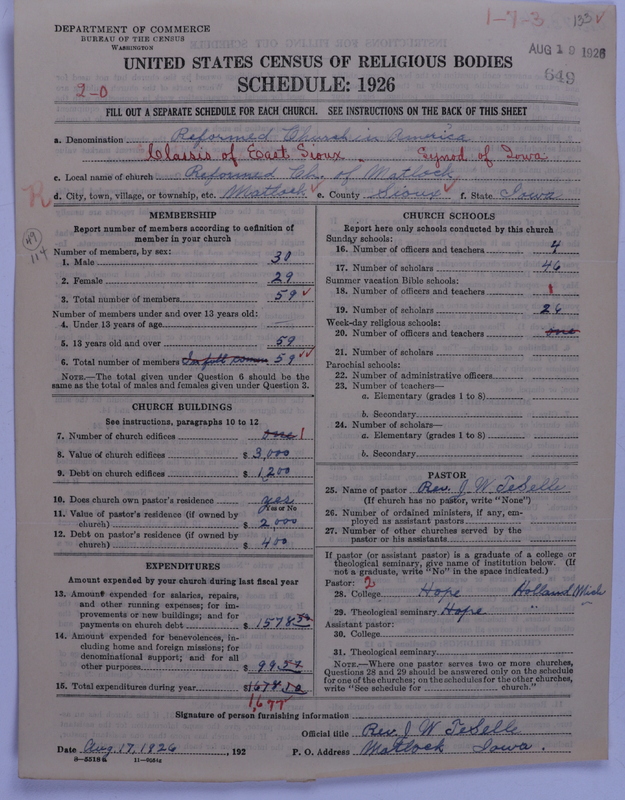 1-7-3 133 ✓
DEPARTMENT OF COMMERCE
BUREAU OF THE CENSUS
WASHINGTON
AUG 19 1926
649
UNITED STATES CENSUS OF RELIGIOUS BODIES
SCHEDULE: 1926
2-0
FILL OUT A SEPARATE SCHEDULE FOR EACH CHURCH. SEE INSTRUCTIONS ON THE BACK OF THIS SHEET
a. Denomination Reformed Church in America
Classis of East Sioux. Synod of Iowa
c. Local name of church Reformed Ch. of Matlock
R
d. City, town, village, or township, etc. Matlock ✓ e. County Sioux ✓ f. State Iowa
49
114
MEMBERSHIP
Report number of members according to definition of
member in your church
Number of members, by sex:
1. Male 30
2. Female 29
3. Total number of members 59 ✓
Number of members under and over 13 years old:
4. Under 13 years of age
5. 13 years old and over 59
6. Total number of members In full comm 59 ✓✓
NOTE.—The total given under Question 6 should be the
same as the total of males and females given under Question 3.
CHURCH BUILDINGS
See instructions, paragraphs 10 to 12
7. Number of church edifices one 1
8. Value of church edifices $ 3,000
9. Debt on church edifices $ 1200
10. Does church own pastor's residence yes
Yes or No
11. Value of pastor's residence (if owned by
church) $ 2,000
12. Debt on pastor's residence (if owned by
church) $ 400
EXPENDITURES
Amount expended by your church during last fiscal year
13. Amount expended for salaries, repairs,
and other running expenses; for im-
provements or new buildings; and for
payments on church debt $ 1578
14. Amount expended for benevolences, in-
cluding home and foreign missions; for
denominational support; and for all
other purposes $ 99
15. Total expenditures during year $ 1678
1,677
CHURCH SCHOOLS
Report here only schools conducted by this church
Sunday schools:
16. Number of officers and teachers 4
17. Number of scholars 46
Summer vacation Bible schools:
18. Number of officers and teachers 1
19. Number of scholars 26
Week-day religious schools:
20. Number of officers and teachers one
21. Number of scholars
Parochial schools:
22. Number of administrative officers
23. Number of teachers—
a. Elementary (grades 1 to 8)
b. Secondary
24. Number of scholars—
a. Elementary (grades 1 to 8)
b. Secondary
PASTOR
25. Name of pastor Rev. J. W. TeSelle
(If church has no pastor, write "None")
26. Number of ordained ministers, if any, em-
ployed as assistant pastors
27. Number of other churches served by the
pastor or his assistants
If pastor (or assistant pastor) is a graduate of a college or
theological seminary, give name of institution below. (If
not a graduate, write "No" in the space indicated.)
Pastor: 2
28. College Hope Holland Mich
29. Theological seminary Hope "
Assistant pastor:
30. College
31. Theological seminary
NOTE.—Where one pastor serves two or more churches,
Questions 28 and 29 should be answered only on the schedule
for one of the churches; on the schedules for the other churches,
write "See schedule for church."
Signature of person furnishing information
Official title Rev. J. W. TeSelle
Date Aug. 17, 1926, 192 P. O. Address Matlock Iowa.